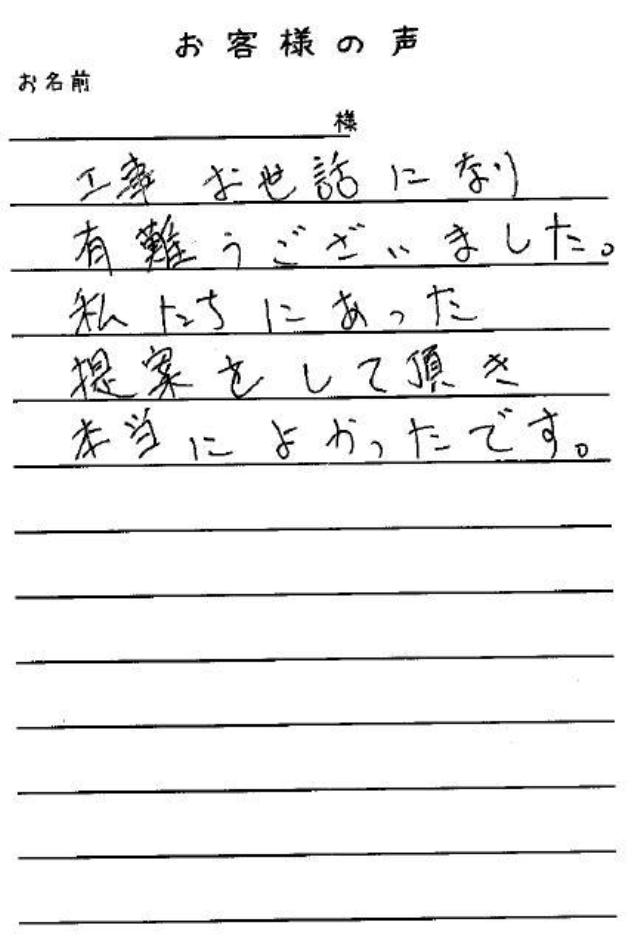 お客様の声
お名前
様
工事 お世話になり
有難うございました。
私たちにあった
提案をして頂き
本当によかったです。